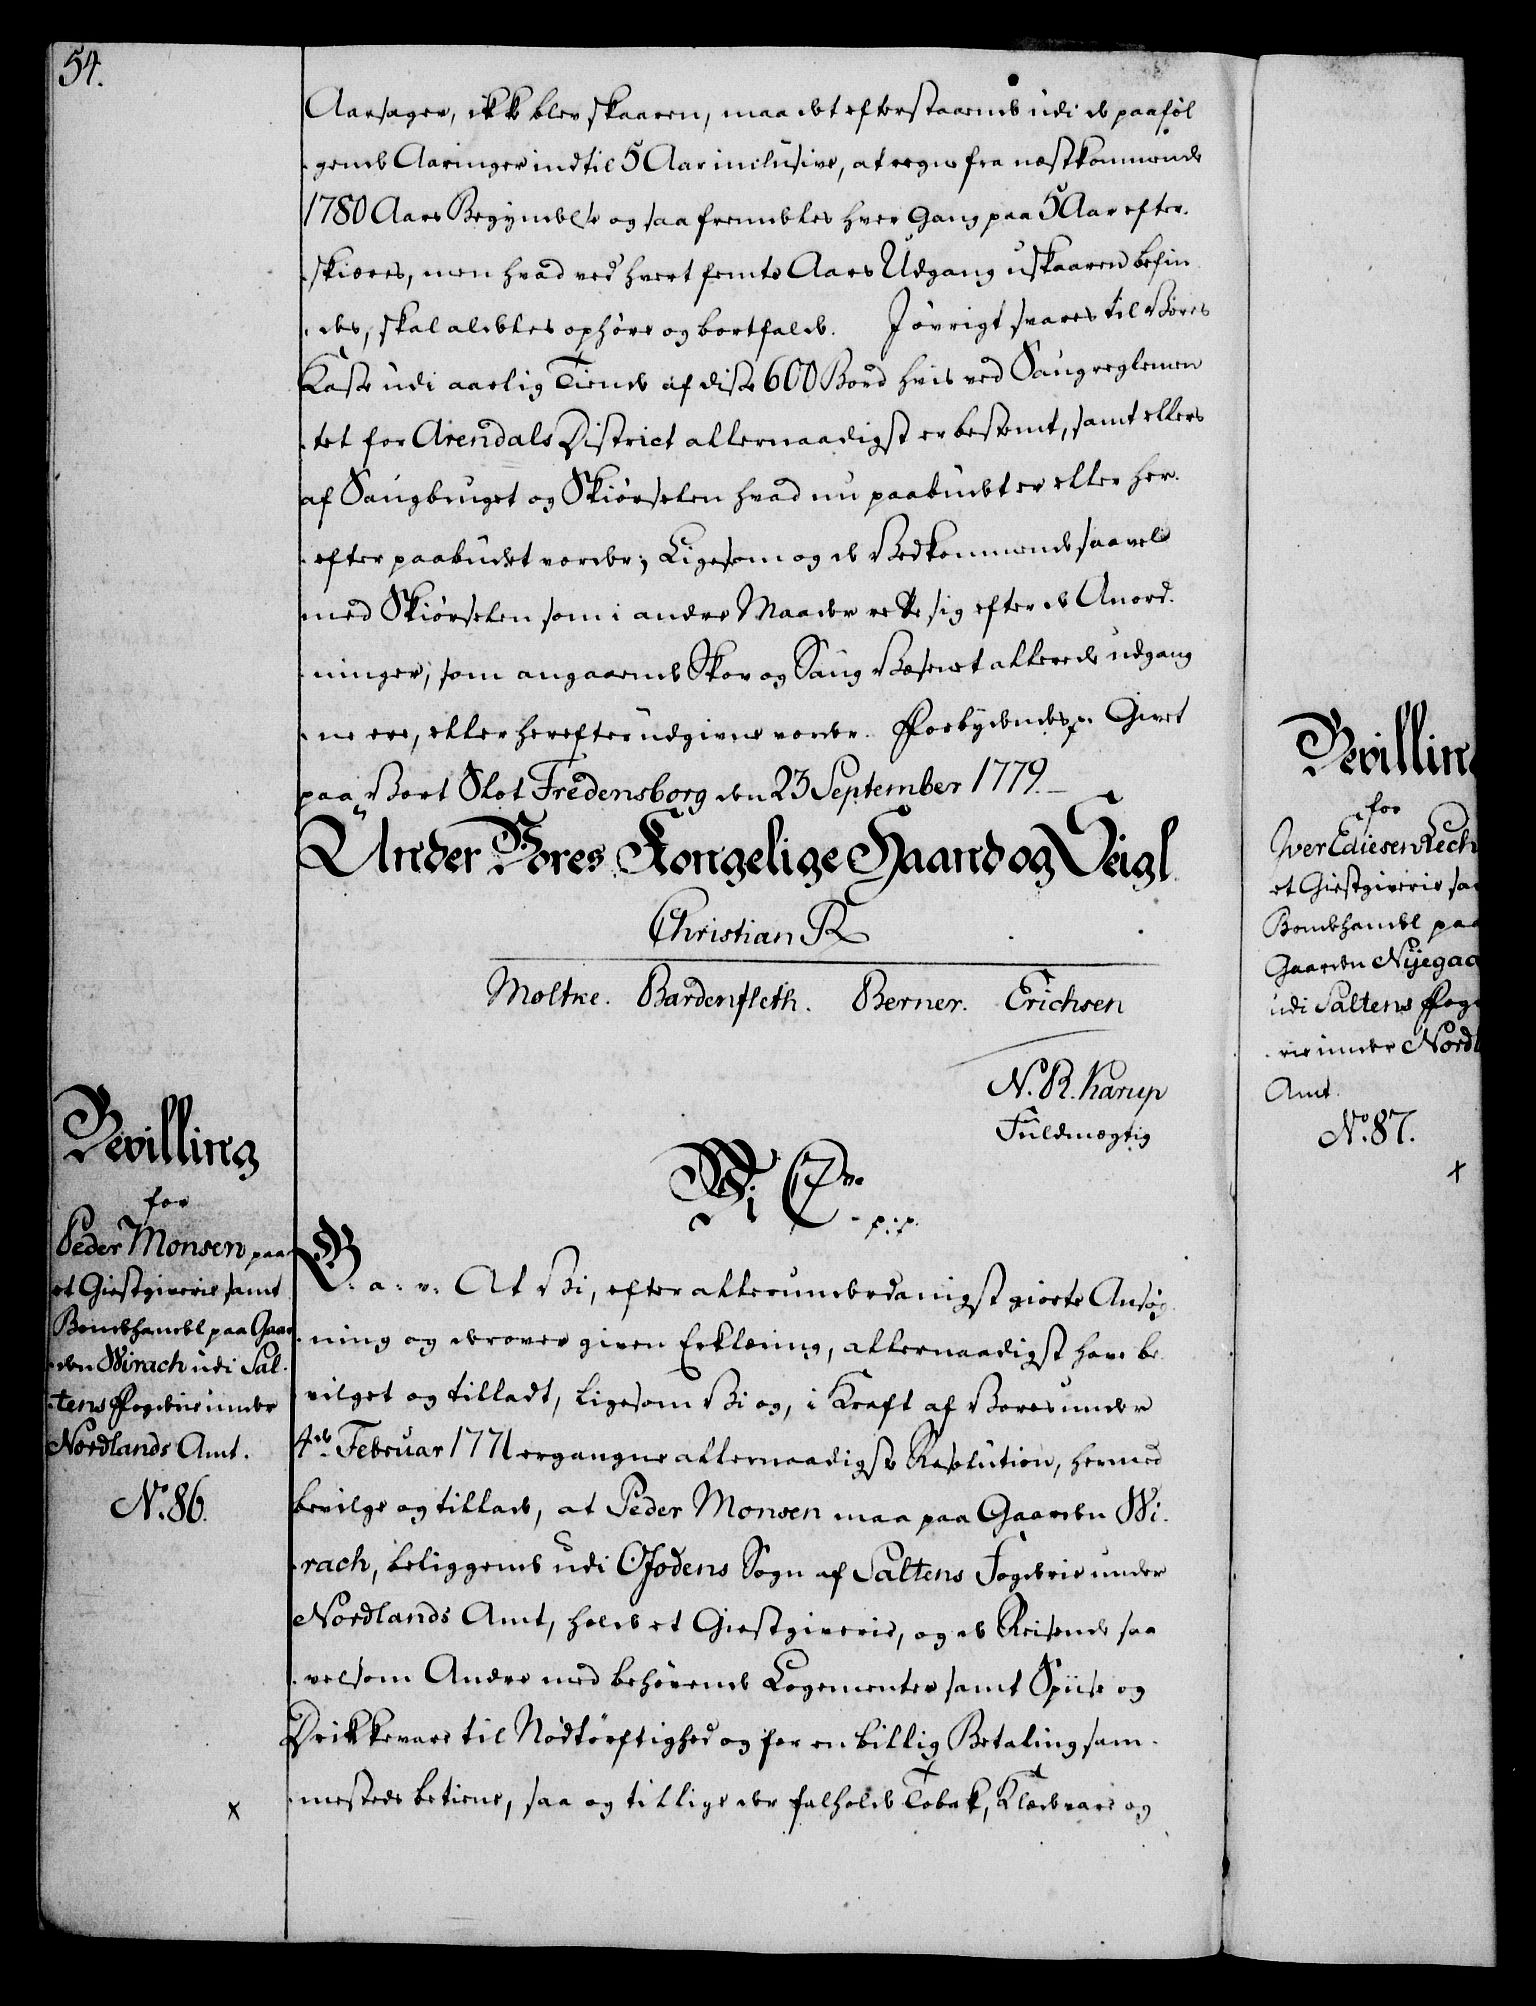 54.
Aarsager, ikke blev skaaren, maa det efterstaaende udi de paaføl
gende Aaringer indtil 5 Aar inclusive, at regne fra næstkommende
1780 Aars Begyndelse og saa fremdeles hver Gang paa 5 Aar efter-
skiæres, men hvad ved hvert femte Aars Udgang uskaaren befin
des, skal aldeles ophøre og bortfalde. I øvrigt svares til Vores
Kasse udi aarlig Tiende af disse 600 Bord hvis ved Saugreglemen
tet for Arendals District allernaadigst er bestemt, samt ellers
af Saugbruget og Skiørselen hvad nu paabudet er eller her-
efter paabudet vorder; Ligesom og de Vedkommende saavel
med Skiørselen som i andre Maader rette sig efter de Anord-
ninger, som angaaende Skov og Saug Væsenet allerede udgang
ne ere, eller herefter udgivne vorder. Forbydendes p. Givet
paa Vort Slot Fredensborg den 23 September 1779.
Under Vores Kongelige Haand og Seigl.
Christian R
Moltke. Bardenfleth. Berner. Erichsen
N. R. Karup
Fuldmægtig
Bevilling
for
Peder Monsen paa
et Giestgiverie samt
Bondehandel paa Gaar
den Wirach udi Sal-
tens Fogderie under
Nordlands Amt.
No. 86.
x
Wi C 7de
p: p.
G. a. v. At Vi, efter allerunderdanigst giorte Ansøg-
ning og derover given Erklæring, allernaadigst have be-
vilget og tilladt, ligesom Vi og, i Kraft af Vores under
4de Februar 1771 ergangne allernaadigste Resolution, hermed
bevilge og tillade, at Peder Monsen maa paa Gaarden Wi-
rach, beliggende udi Ofodens Sogn af Saltens Fogderie under
Nordlands Amt, holde et Giestgiverie, og de Reisende saa
velsom Andre med behøvende Logementer samt Spiise og
Drikkevare til Nødtørftighed og for en billig Betaling sam-
mesteds betiene, saa og tillige der falholde Tobak, Klædevare og
Bevilling
for
Iver Ediesen
et Giestgiverie
Bondehandel paa
Gaarden
udi Saltens
rie under
Amt.
No. 87.
x